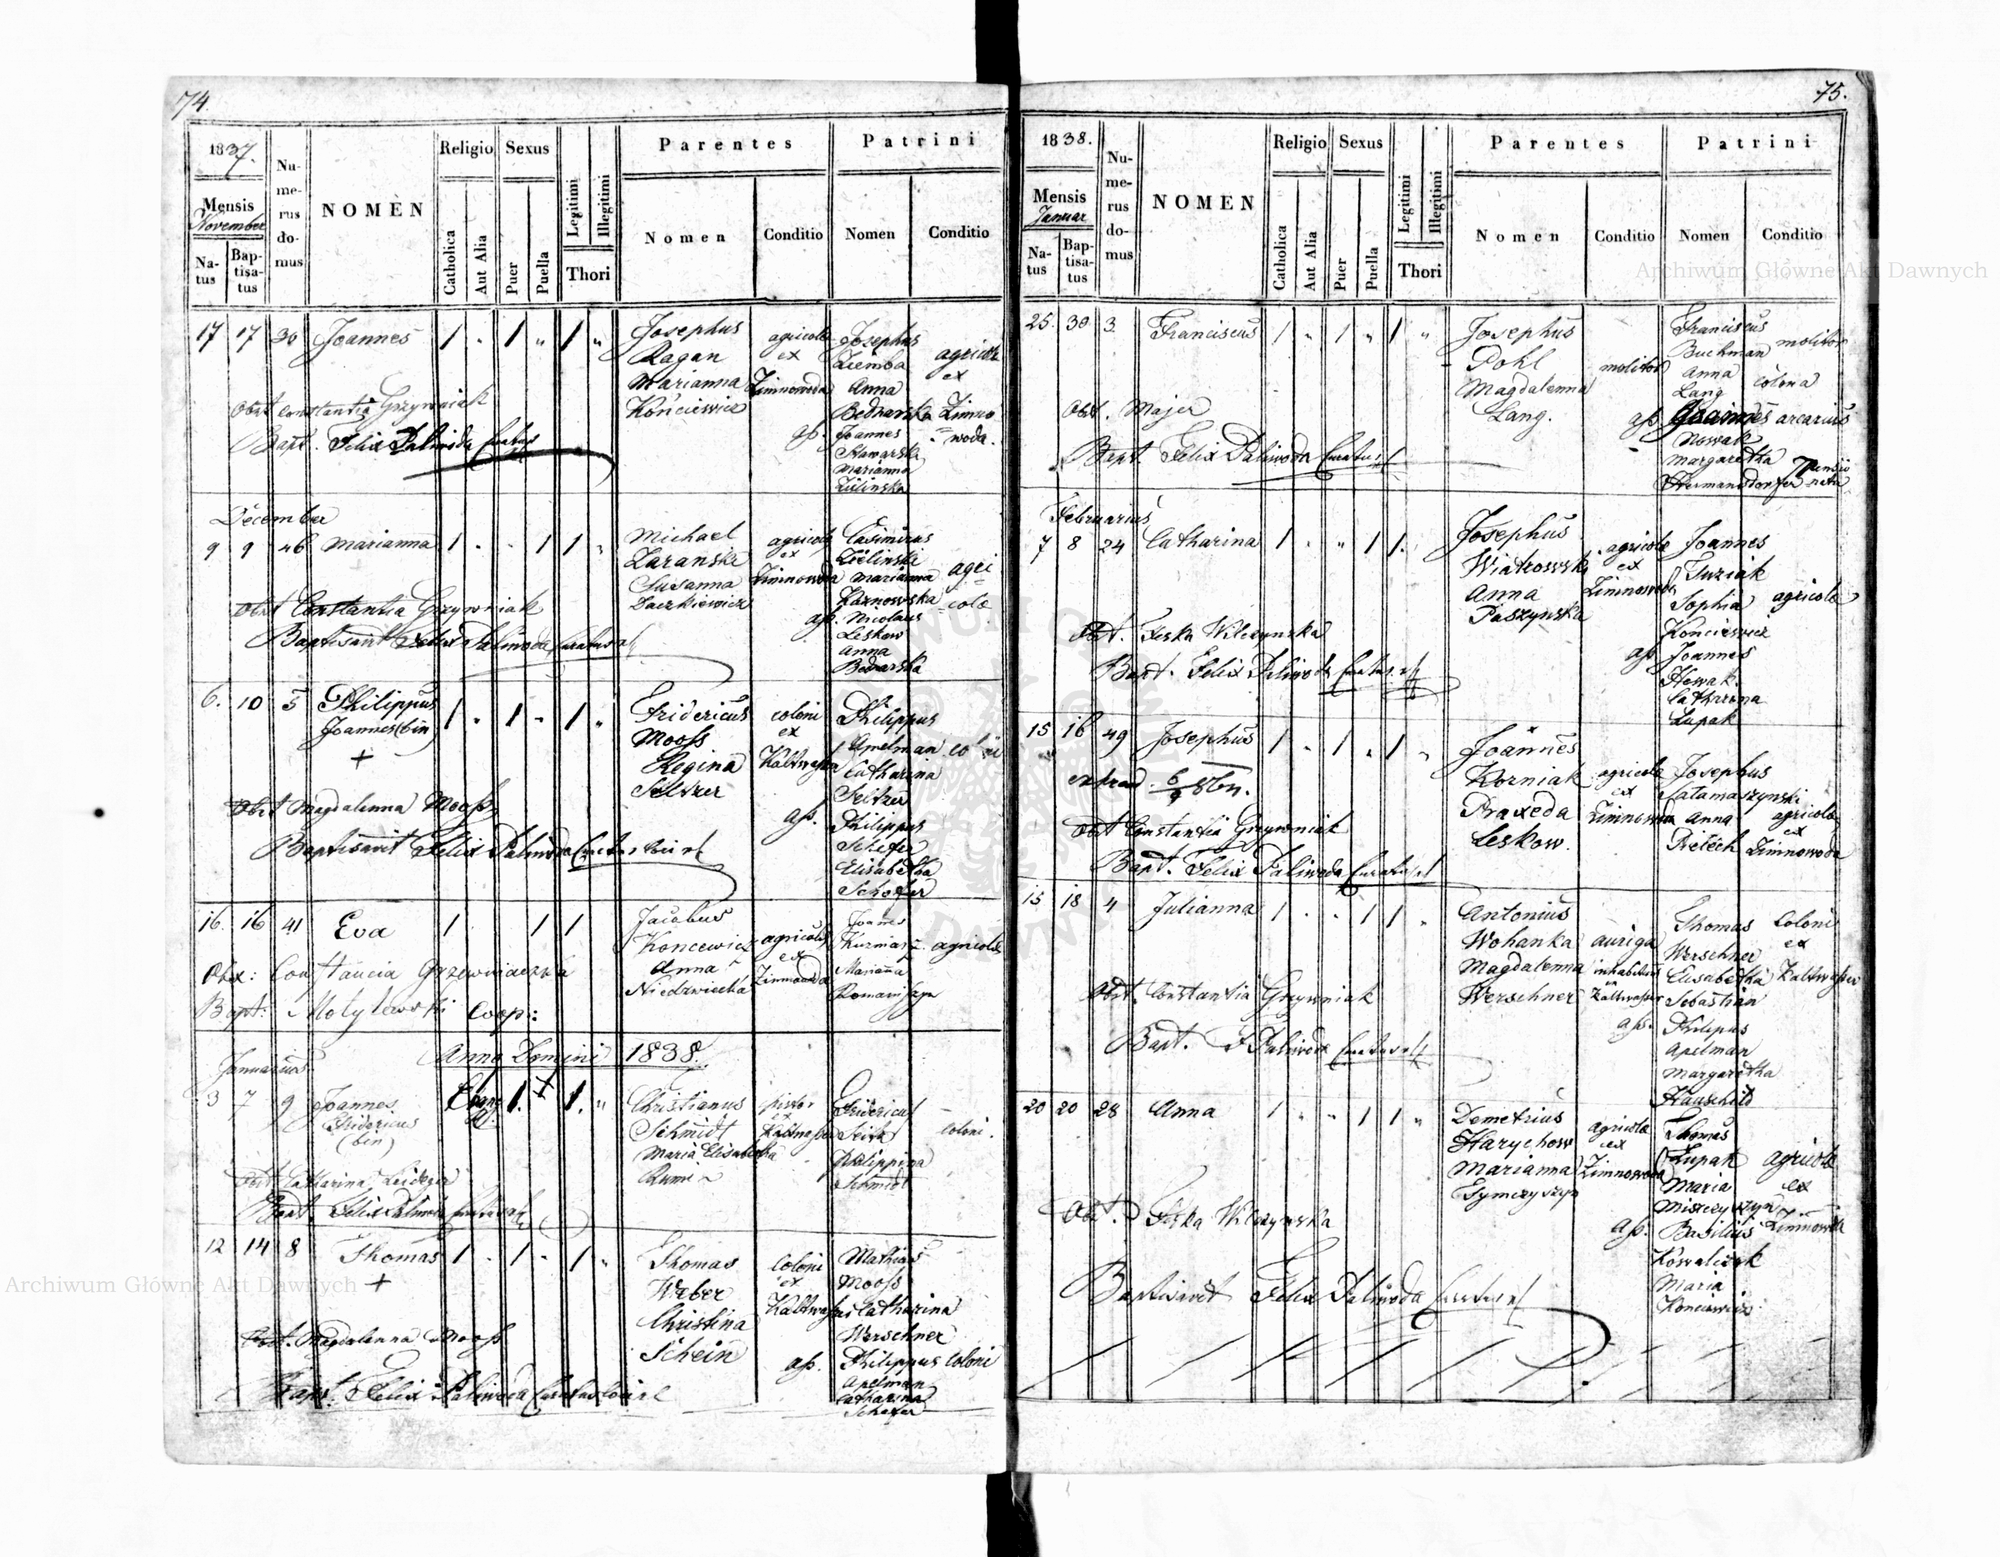 74.
1837.
Mensis
November
Na-
tus
Bap-
tisa-
tus
Nu-
me-
rus
do-
mus
NOMEN
Religio
Catholica
Aut Alia
Sexus
Puer
Puella
Legitimi
Illegitimi
Thori
Parentes
Nomen
Conditio
Patrini
Nomen
Conditio
17 17 30 Joannes 1 " 1 " 1 "
Josephus
Ragan
Marianna
Końciewicz
agricolæ
ex
Zimnowoda
Josephus
Ziemba
Anna
Bednarska
aſs. Joannes
Marianna
Zielinska
agricolæ
ex
Zimno
woda.
Obst Constantia Grzywniak
Bapt. Felix Paliwoda Curatus
December
9 9 46 Marianna 1 " " 1 1 "
Michael
Zaranski
Susanna
Daczkiewicz
agricolæ
ex
Zimnowoda
Casimirus
Zielinski
Marianna
aſs. Nicolaus
Leskow
Anna
Bednarska
agri
colæ
Obst Constantia Grzywniak
Baptisavit Felix Paliwoda Curatus
6. 10 5 Philippus
Joannes (bin)
+
1 " 1 " 1 "
Fridericus
Mooſs
Regina
Seltzer
coloni
ex
Kaltwaſser
Philippus
Apelman
Catharina
Seltzer
aſs. Philippus
Schefer
Elisabetha
Schefer
coloni
Obst Magdalenna Mooſs
Baptisavit Felix Paliwoda Curatus
16. 16 41 Eva 1 1 1
Jacobus
Koncewicz
Anna
Niedzwiecka
agricolæ
ex
Zimnawoda
Joannes
Marianna
agricolæ
Obst: Constancia Grzewniaczka
Bapt: Motylewski Coop:
Anno Domini 1838.
Januarius
3 7 9 Joannes
Fridericus
(bin)
Evang 1. + 1. "
Christianus
Schmidt
Maria Elisabetha
pistor
ex
Kaltwaſser
Fridericus
Philippina
Schmidt
coloni.
Obst Catharina
Bapt. Felix Paliwoda Curatus
12 14 8 Thomas 1 " 1 " 1 "
+
Thomas
Weber
Christina
Schein
coloni
ex
Kaltwaſser
Mathias
Mooſs
Catharina
Werschner
aſs. Philippus
Apelman
Catharina
Schefer
coloni
Obst. Magdalenna Mooſs
Bapt. Felix Paliwoda Curatus
75.
1838.
Mensis
Januar
Na-
tus
Bap-
tisa-
tus
Nu-
me-
rus
do-
mus
NOMEN
Religio
Catholica
Aut Alia
Sexus
Puer
Puella
Legitimi
Illegitimi
Thori
Parentes
Nomen
Conditio
Patrini
Nomen
Conditio
25. 30 3. Franciscus 1 " 1 " 1 "
Josephus
Pohl
Magdalenna
Lang.
molitor
Franciscus
Buchman
Anna
Lang
aſs Joannes
Nowak
Margaretha
Hermansdorfer
molitor
colona
arcarius
Obst. Majer
Bapt. Felix Paliwoda Curatus
Februarius
7 8 24 Catharina 1 " " 1 1.
Josephus
Wiatrowski
Anna
Paszynska
agricolæ
ex
Zimnowoda
Joannes
Tuziak
Sophia
Konciewicz
aſs Joannes
Catharina
Lupak
agricolæ
Obst. Feska Wilczynska
Bapt. Felix Paliwoda Curatus
15 16 49 Josephus 1 " 1 " 1 "
Joannes
Korniak
Praxeda
Leskow.
agricolæ
ex
Zimnowoda
Josephus
Satamaszynski
Anna
Pietech
agricolæ
ex
Zimnowoda
Obst Constantia Grzywniak
Bapt. Felix Paliwoda Curatus
15 18 4 Julianna 1 " " 1 1 "
Antonius
Wohanka
Magdalenna
Werschner
auriga
inhabitans
in
Kaltwaſser
Thomas
Werschner
Elisabetha
Sebastian
aſs. Philipus
Apelman
Margaretha
Hauschild
coloni
ex
Kaltwaſser
Obst. Constantia Grzywniak
Bapt. F Paliwoda Curatus
20 20 28 Anna 1 " " 1 1 "
Demetrius
Harychow
Marianna
agricolæ
ex
Zimnowoda
Thomas
Lupak
Maria
aſs. Basilius
Kowalczuk
Maria
Konciewicz
agricolæ
ex
Zimnowoda
Obst. Feska Wilczynska
Baptisavit Felix Paliwoda Curatus
Archiwum Główne Akt Dawnych
Archiwum Główne Akt Dawnych